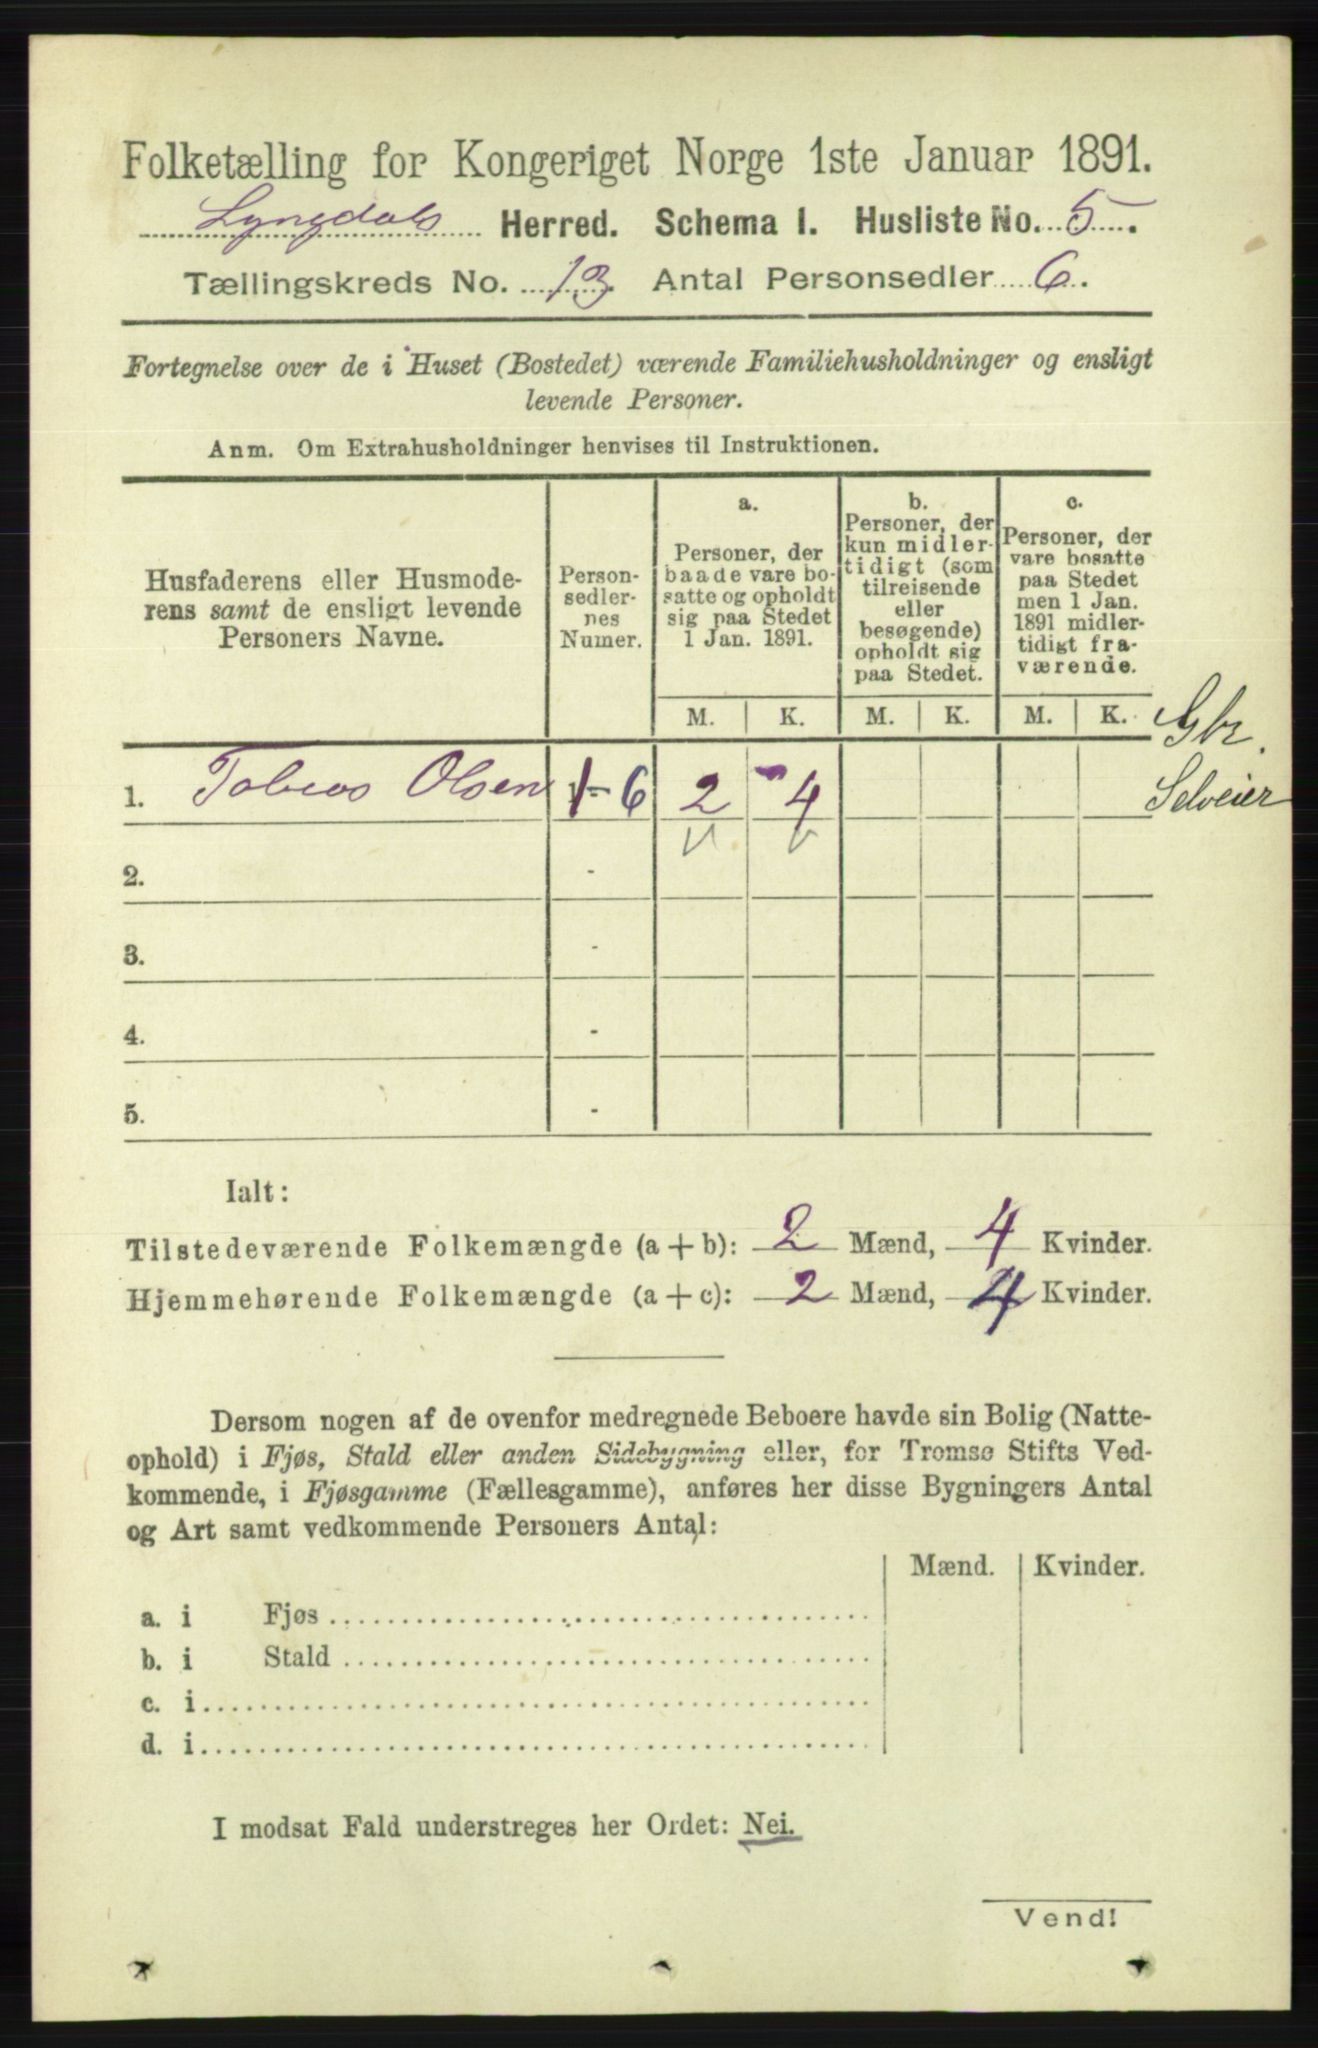 Folketælling for Kongeriget Norge 1ste Januar 1891.
Lyngdals Herred. Schema I. Husliste No. 5.
Tællingskreds No. 13. Antal Personsedler 6.
Fortegnelse over de i Huset (Bostedet) værende Familiehusholdninger og ensligt
levende Personer.
Anm. Om Extrahusholdninger henvises til Instruktionen.
Husfaderens eller Husmode-
rens samt de ensligt levende
Personers Navne.
Person-
sedler-
nes
Numer.
a.
Personer, der
baade vare bo-
satte og opholdt
sig paa Stedet
1 Jan. 1891.
b.
Personer, der
kun midler-
tidigt (som
tilreisende
eller
besøgende)
opholdt sig
paa Stedet.
c.
Personer, der
vare bosatte
paa Stedet
men 1 Jan.
1891 midler-
tidigt fra-
værende.
M. K. M. K. M. K.
Gbr.
Selveier
1. Tobias Olsen 1-6 2 4
2. -
3. -
4. -
5. -
Ialt:
Tilstedeværende Folkemængde (a + b): 2 Mænd, 4 Kvinder.
Hjemmehørende Folkemængde (a + c): 2 Mænd, 4 Kvinder.
Dersom nogen af de ovenfor medregnede Beboere havde sin Bolig (Natte-
ophold) i Fjøs, Stald eller anden Sidebygning eller, for Tromsø Stifts Ved-
kommende, i Fjøsgamme (Fællesgamme), anføres her disse Bygningers Antal
og Art samt vedkommende Personers Antal:
Mænd. Kvinder.
a. i Fjøs
b. i Stald
c. i
d. i
I modsat Fald understreges her Ordet: Nei.
Vend!